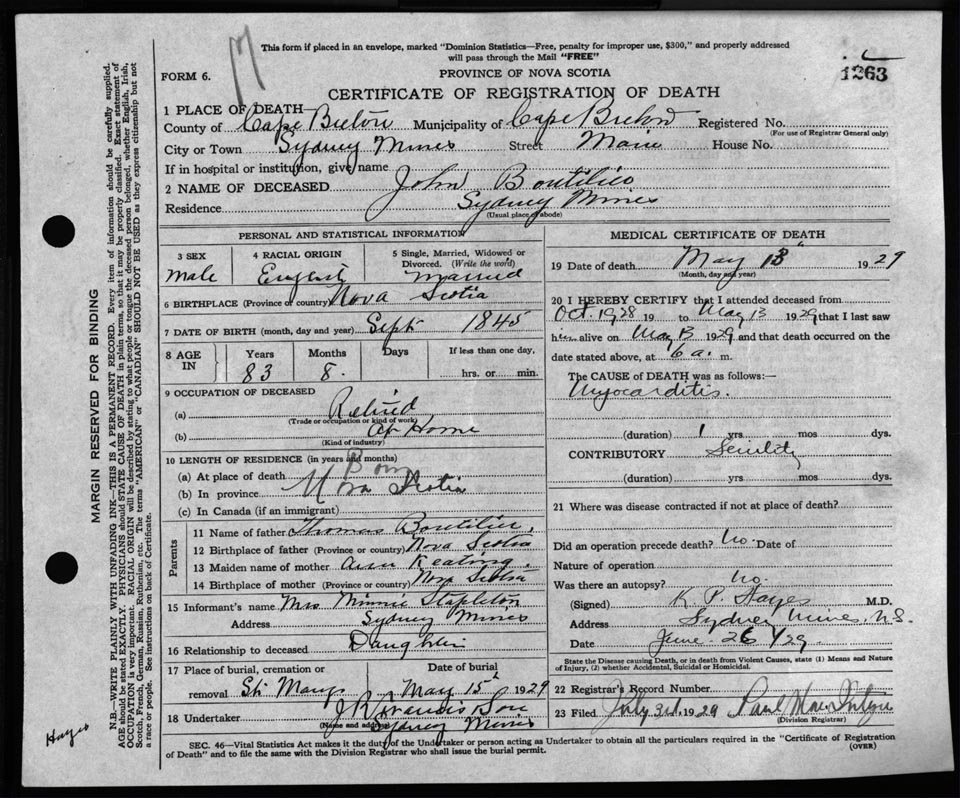 This form if placed in an envelope, marked "Dominion Statistics—Free, penalty for improper use, $300," and properly addressed
will pass through the Mail "FREE"
FORM 6.
PROVINCE OF NOVA SCOTIA
1263
CERTIFICATE OF REGISTRATION OF DEATH
1 PLACE OF DEATH
County of Cape Breton Municipality of Cape Breton Registered No.
(For use of Registrar General only)
City or Town Sydney Mines Street Main House No.
If in hospital or institution, give name
2 NAME OF DECEASED John Boutilier
Residence Sydney Mines
(Usual place of abode)
PERSONAL AND STATISTICAL INFORMATION
3 SEX
Male
4 RACIAL ORIGIN
English
5 Single, Married, Widowed or
Divorced. (Write the word)
Married
6 BIRTHPLACE (Province or country) Nova Scotia
7 DATE OF BIRTH (month, day and year) Sept 1845
8 AGE IN
Years Months Days If less than one day,
83 8. hrs. or min.
9 OCCUPATION OF DECEASED
(a) Retired
(Trade or occupation or kind of work)
(b) At Home
(Kind of industry)
10 LENGTH OF RESIDENCE (in years and months)
(a) At place of death Born
(b) In province Nova Scotia
(c) In Canada (if an immigrant)
Parents
11 Name of father Thomas Boutilier,
12 Birthplace of father (Province or country) Nova Scotia
13 Maiden name of mother Ann Keating,
14 Birthplace of mother (Province or country) Nova Scotia
15 Informant's name Mrs Minnie Stapleton
Address Sydney Mines
16 Relationship to deceased Daughter
17 Place of burial, cremation or Date of burial
removal St. Marys May 15 1929
18 Undertaker
(Name and address) Sydney Mines
MEDICAL CERTIFICATE OF DEATH
19 Date of death May 13 1929
(Month, day and year)
20 I HEREBY CERTIFY that I attended deceased from
Oct. 1928 19 to May 13 1929 that I last saw
him alive on May 13 1929 and that death occurred on the
date stated above, at 6 a. m.
The CAUSE of DEATH was as follows:—
Myocarditis.
(duration) 1 yrs mos dys.
CONTRIBUTORY Senility
(duration) yrs mos dys.
21 Where was disease contracted if not at place of death?
Did an operation precede death? No. Date of
Nature of operation
Was there an autopsy? No.
(Signed) K. P. Hayes M.D.
Address Sydney Mines, N.S.
Date June 26/29.
State the Disease causing Death, or in death from Violent Causes, state (1) Means and Nature
of Injury, (2) whether Accidental, Suicidal or Homicidal.
22 Registrar's Record Number
23 Filed July 3rd, 1929 Paul
(Division Registrar)
SEC. 46—Vital Statistics Act makes it the duty of the Undertaker or person acting as Undertaker to obtain all the particulars required in the "Certificate of Registration
of Death" and to file the same with the Division Registrar who shall issue the burial permit.
(OVER)
MARGIN RESERVED FOR BINDING
N.B.—WRITE PLAINLY WITH UNFADING INK—THIS IS A PERMANENT RECORD. Every item of information should be carefully supplied.
AGE should be stated EXACTLY. PHYSICIANS should STATE CAUSE OF DEATH in plain terms, so that it may be properly classified. Exact statement of
OCCUPATION is very important. RACIAL ORIGIN will be described by stating to what people or tongue the deceased person belonged, whether English, Irish,
Scotch, French, German, Russian, Ruthenian, etc. The terms "AMERICAN" or "CANADIAN" SHOULD NOT BE USED as they express citizenship but not
a race or people. See instructions on back of Certificate.
Hayes